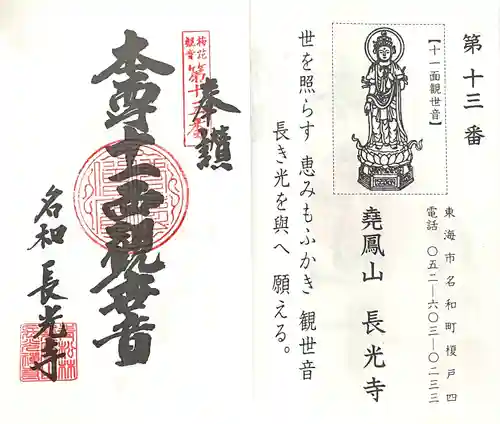 第十三番
【十一面観世音】
東海市名和町榎戸四
電話 〇五二―六〇三―〇二三三
堯鳳山 長光寺
世を照らす 恵みもふかき 観世音
長き光を與へ 願える。
奉讃
梅花観音
第十三番
本尊十一面観世音
名和 長光寺